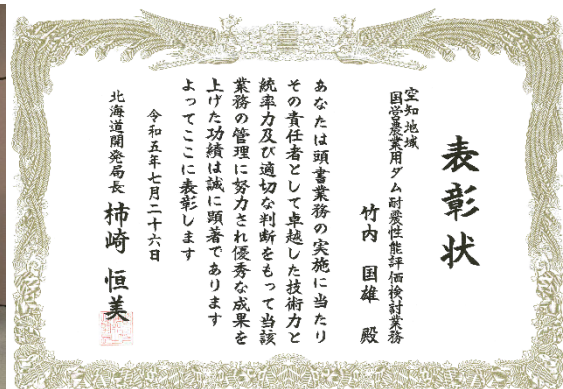 表彰状
空知地域
国営農業用ダム耐震性能評価検討業務
竹内 国雄 殿
あなたは頭書業務の実施に当たり
その責任者として卓越した技術力と
統率力及び適切な判断をもって当該
業務の管理に努力され優秀な成果を
上げた功績は誠に顕著であります
よってここに表彰します
令和五年七月二十六日
北海道開発局長 柿崎 恒美